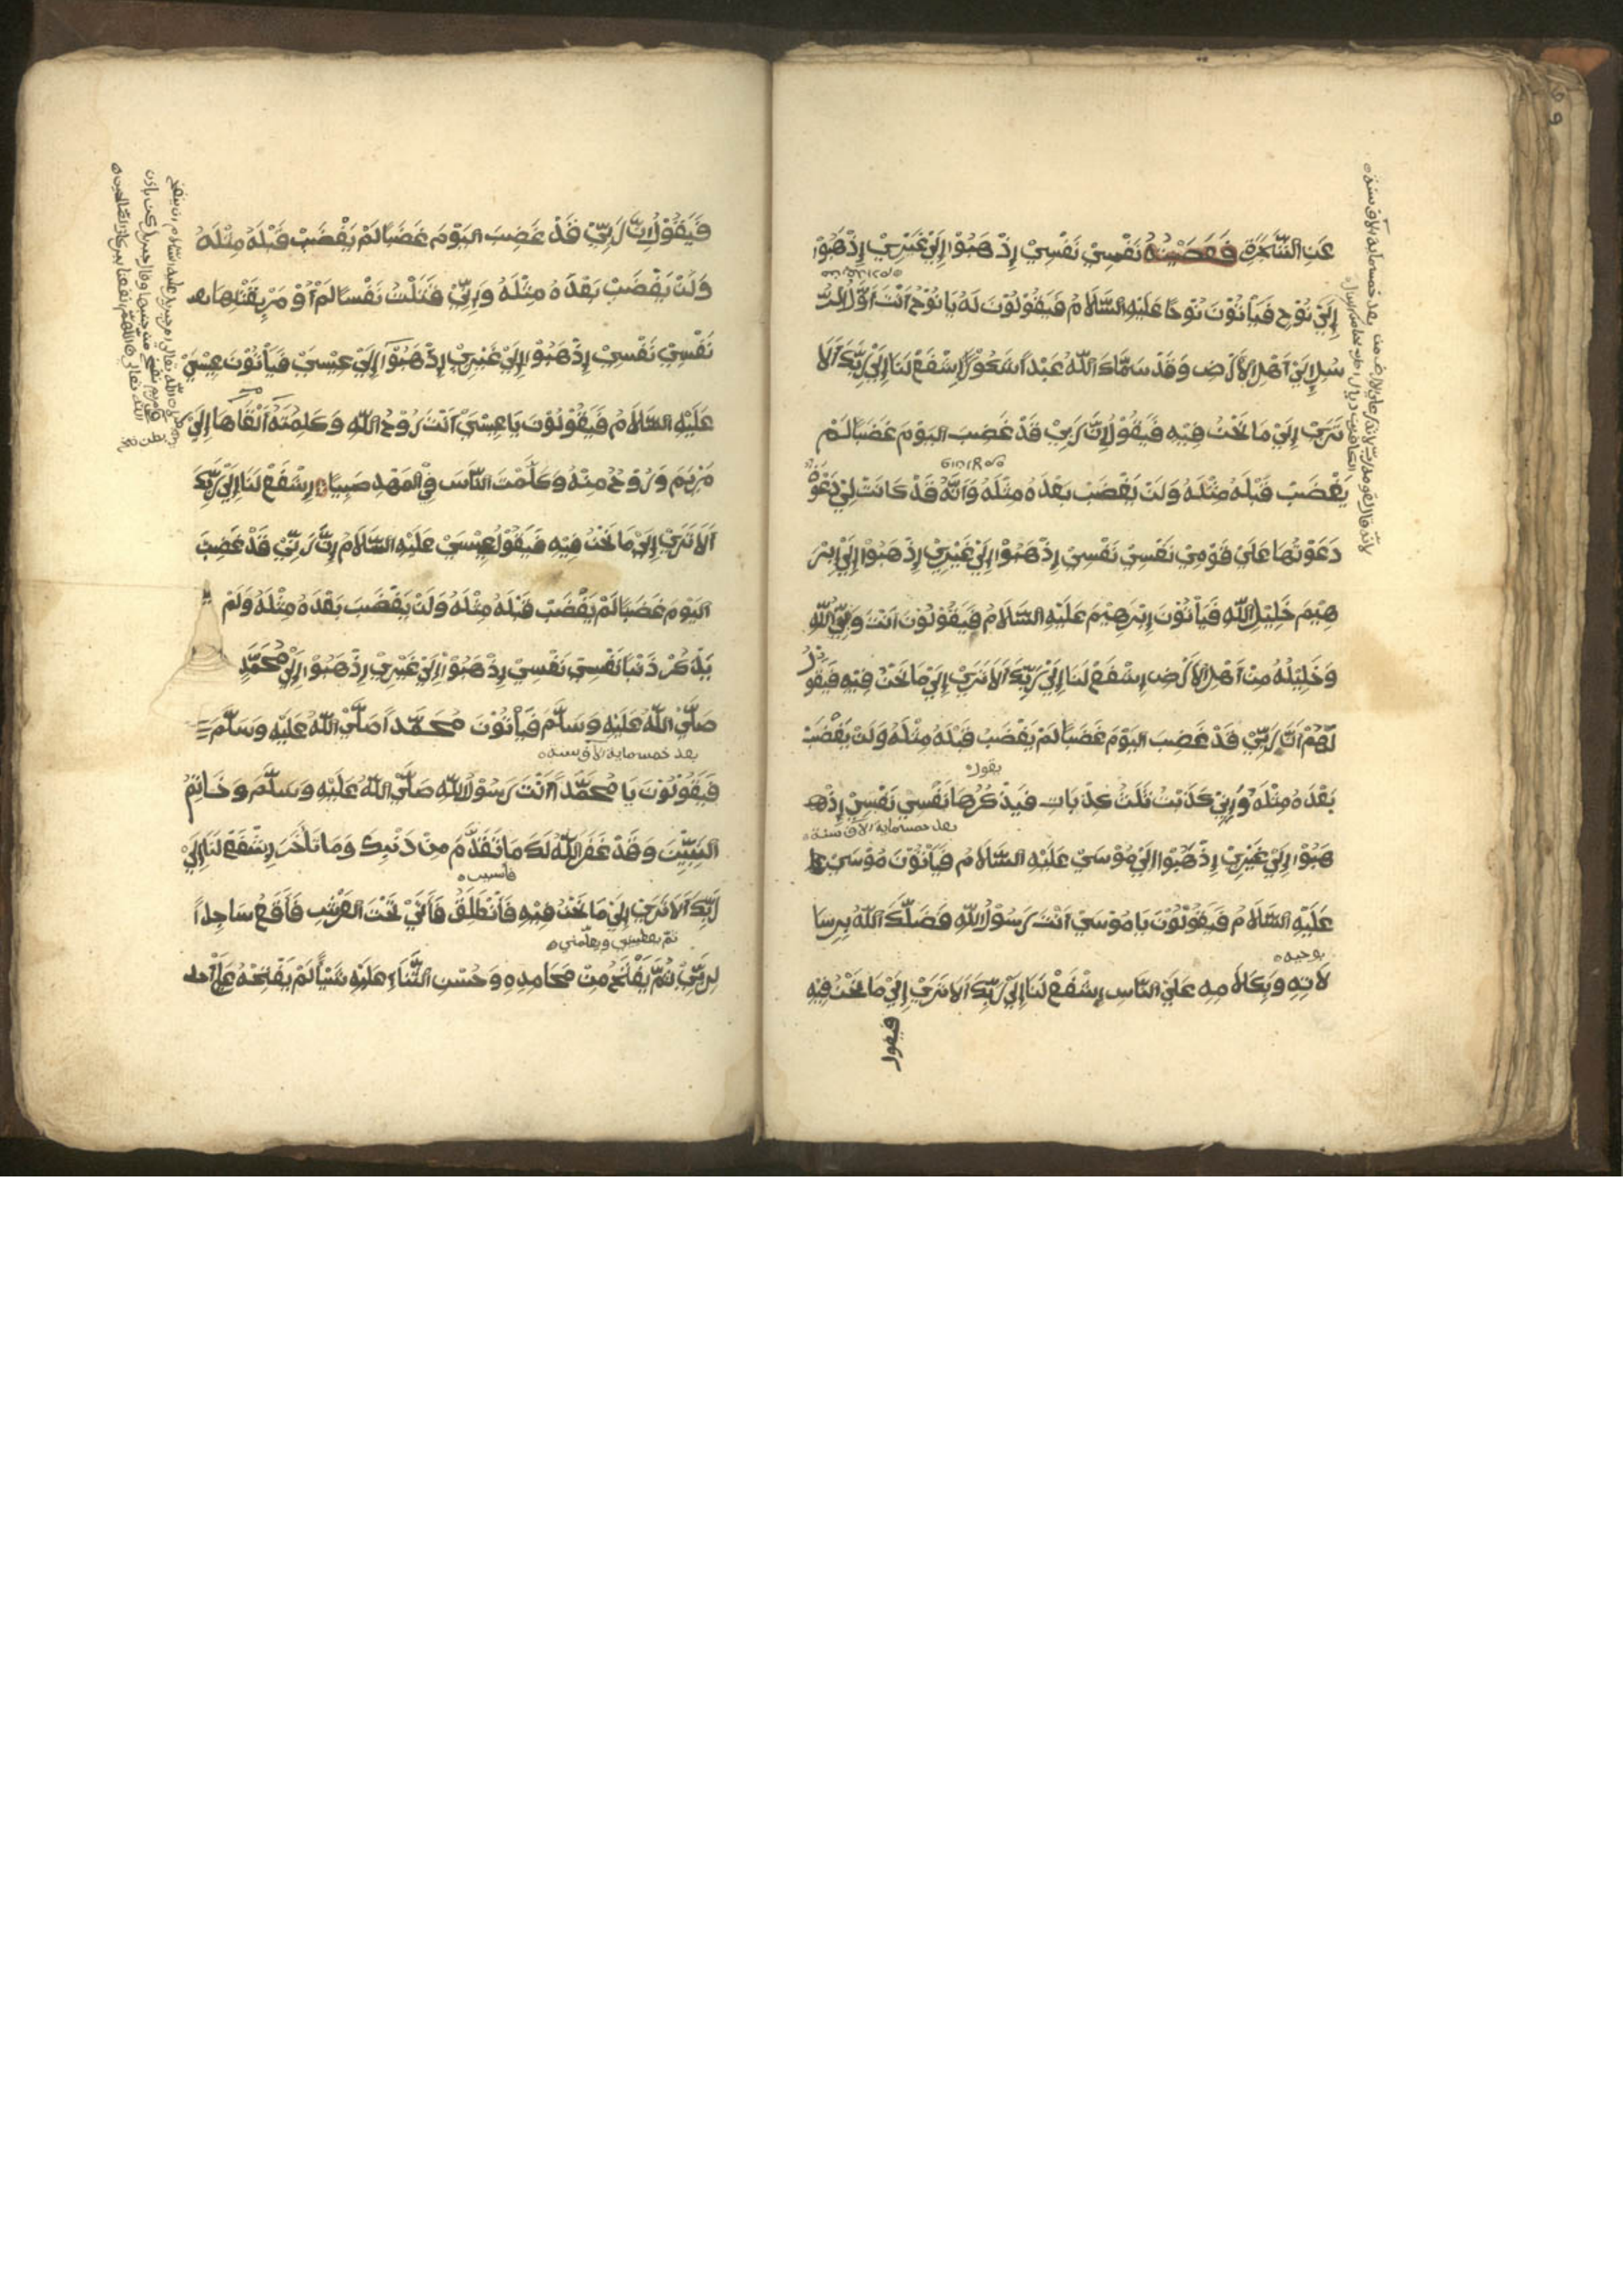 عَنِ الشَّجَرَةِ فَعَصَيْتُهُ نَفْسِيْ نَفْسِيْ إِذْهَبُوْا إِلَيْ غَيْرِيْ إِذْهَبُوْا
إِلَيْ نُوْحٍ فَيَأْتُوْنَ نُوْحًا عَلَيْهِ السَّلَامُ فَيَقُوْلُوْنَ لَهُ يَا نُوْحُ أَنْتَ أَوَّلُ الرُّ
سُلِ إِلَيْ أَهْلِ الْأَرْضِ وَقَدْ سَمَّاكَ اللّٰهُ عَبْدًا شَكُوْرًا إِشْفَعْ لَنَا إِلَيْ رَبِّكَ أَلَا
تَرَيْ إِلَيْ مَا نَحْنُ فِيْهِ فَيَقُوْلُ إِنَّ رَبِّيْ قَدْ غَضِبَ الْيَوْمَ غَضَبًا لَمْ
يَغْضَبْ قَبْلَهُ مِثْلَهُ وَلَنْ يَغْضَبَ بَعْدَهُ مِثْلَهُ وَأَنَّهُ قَدْ كَانَتْ لِيْ دَعْوَةٌ
دَعَوْتُهَا عَلَيْ قَوْمِيْ نَفْسِيْ نَفْسِيْ إِذْهَبُوْا إِلَيْ غَيْرِيْ إِذْهَبُوْا إِلَيْ إِبْرَ
هِيْمَ خَلِيْلِ اللّٰهِ فَيَأْتُوْنَ إِبْرَهِيْمَ عَلَيْهِ السَّلَامُ فَيَقُوْلُوْنَ أَنْتَ نَبِيُّ اللّٰهِ
وَخَلِيْلُهُ مِنْ أَهْلِ الْأَرْضِ إِشْفَعْ لَنَا إِلَيْ رَبِّكَ أَلَا تَرَيْ إِلَيْ مَا نَحْنُ فِيْهِ فَيَقُوْلُ
لَهُمْ أَنَّ رَبِّيْ قَدْ غَضِبَ الْيَوْمَ غَضَبًا لَمْ يَغْضَبْ قَبْلَهُ مِثْلَهُ وَلَنْ يَغْضَبَ
يقول
بَعْدَهُ مِثْلَهُ وَإِنِّيْ كَذَبْتُ ثَلٰثَ كَذِبَاتٍ فَيَذْكُرُهَا نَفْسِيْ نَفْسِيْ إِذْهـ
بعد خمسماية الاف سنة
هَبُوْا إِلَيْ غَيْرِيْ إِذْهَبُوْا إِلَيْ مُوْسَيْ عَلَيْهِ السَّلَامُ فَيَأْتُوْنَ مُوْسَيْ
عَلَيْهِ السَّلَامُ فَيَقُوْلُوْنَ يَا مُوْسَيْ أَنْتَ رَسُوْلُ اللّٰهِ فَضَلَّكَ اللّٰهُ بِرِسَا
بوحيه
لَاتِهِ وَبِكَلَامِهِ عَلَيْ النَّاسِ إِشْفَعْ لَنَا إِلَيْ رَبِّكَ أَلَا تَرَيْ إِلَيْ مَا نَحْنُ فِيْهِ
فيقول
فَيَقُوْلُ إِنَّ رَبِّيْ قَدْ غَضِبَ الْيَوْمَ غَضَبًا لَمْ يَغْضَبْ قَبْلَهُ مِثْلَهُ
وَلَنْ يَغْضَبَ بَعْدَهُ مِثْلَهُ وَإِنِّيْ قَتَلْتُ نَفْسًا لَمْ أُوْمَرْ بِقَتْلِهَا
نَفْسِيْ نَفْسِيْ إِذْهَبُوْا إِلَيْ غَيْرِيْ إِذْهَبُوْا إِلَيْ عِيْسَيْ فَيَأْتُوْنَ عِيْسَيْ
عَلَيْهِ السَّلَامُ فَيَقُوْلُوْنَ يَا عِيْسَيْ أَنْتَ رُوْحُ اللّٰهِ وَكَلِمَتُهُ أَلْقَاهَا إِلَيْ
مَرْيَمَ وَرُوْحٌ مِنْهُ وَكَلَّمْتَ النَّاسَ فِيْ الْمَهْدِ صَبِيًّا إِشْفَعْ لَنَا إِلَيْ رَبِّكَ
أَلَا تَرَيْ إِلَيْ مَا نَحْنُ فِيْهِ فَيَقُوْلُ عِيْسَيْ عَلَيْهِ السَّلَامُ إِنَّ رَبِّيْ قَدْ غَضِبَ
الْيَوْمَ غَضَبًا لَمْ يَغْضَبْ قَبْلَهُ مِثْلَهُ وَلَنْ يَغْضَبَ بَعْدَهُ مِثْلَهُ وَلَمْ
يَذْكُرْ ذَنْبًا نَفْسِيْ نَفْسِيْ إِذْهَبُوْا إِلَيْ غَيْرِيْ إِذْهَبُوْا إِلَيْ مُحَمَّدٍ
صَلَّيْ اللّٰهُ عَلَيْهِ وَسَلَّمَ فَيَأْتُوْنَ مُحَمَّدًا صَلَّيْ اللّٰهُ عَلَيْهِ وَسَلَّمَ
بعد خمسماية الاف سنة
فَيَقُوْلُوْنَ يَا مُحَمَّدًا أَنْتَ رَسُوْلُ اللّٰهِ صَلَّيْ اللّٰهُ عَلَيْهِ وَسَلَّمَ وَخَاتِمُ
النَّبِيِّيْنَ وَقَدْ غَفَرَ اللّٰهُ لَكَ مَا تَقَدَّمَ مِنْ ذَنْبِكَ وَمَا تَأَخَّرَ إِشْفَعْ لَنَا إِلَيْ
فأسير
رَبِّكَ أَلَا تَرَيْ إِلَيْ مَا نَحْنُ فِيْهِ فَأَنْطَلِقُ فَأَتَيْ تَحْتَ الْعَرْشِ فَأَقَعُ سَاجِدًا
ثم يعطيني ويعلمني
لِرَبِّيْ ثُمَّ يَفْتَحُ مِنْ مَحَامِدِهِ وَحُسْنِ الثَّنَاءِ عَلَيْهِ شَيْأً لَمْ يَفْتَحْهُ عَلَيْ أحد